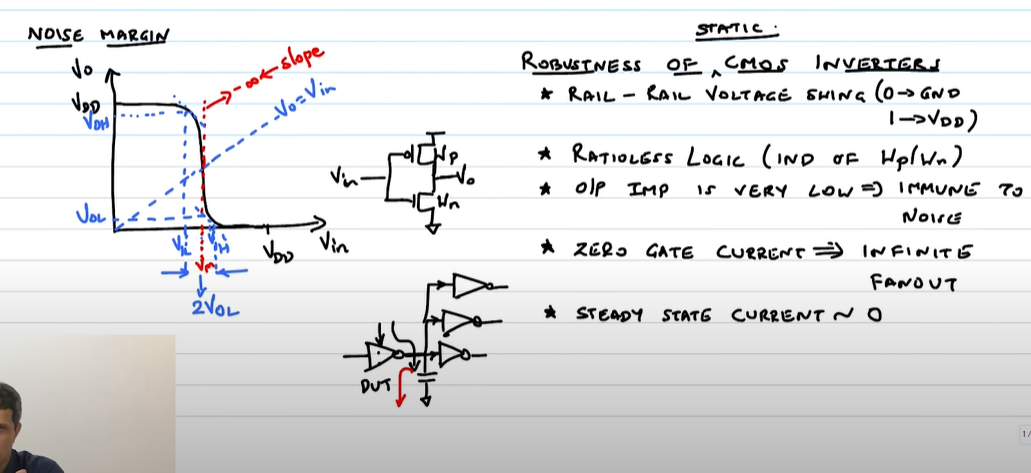 NOISE MARGIN
Vo
VDD
VOH
VOL
-∞ slope
Vo=Vin
VIL
VIH
Vm
VDD
Vin
2VOL
Vin
Wp
Vo
Wn
DUT
STATIC
ROBUSTNESS OF ^ CMOS INVERTERS
* RAIL - RAIL VOLTAGE SWING (0→GND
1→VDD)
* RATIOLESS LOGIC (IND OF Wp/Wn)
* O/P IMP IS VERY LOW ⇒ IMMUNE TO
NOISE
* ZERO GATE CURRENT ⇒ INFINITE
FANOUT
* STEADY STATE CURRENT ~ 0
1/